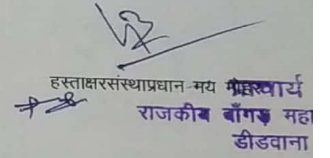 हस्ताक्षरसंस्थाप्रधान मय
राजकीय बाँगड़ महा
डीडवाना